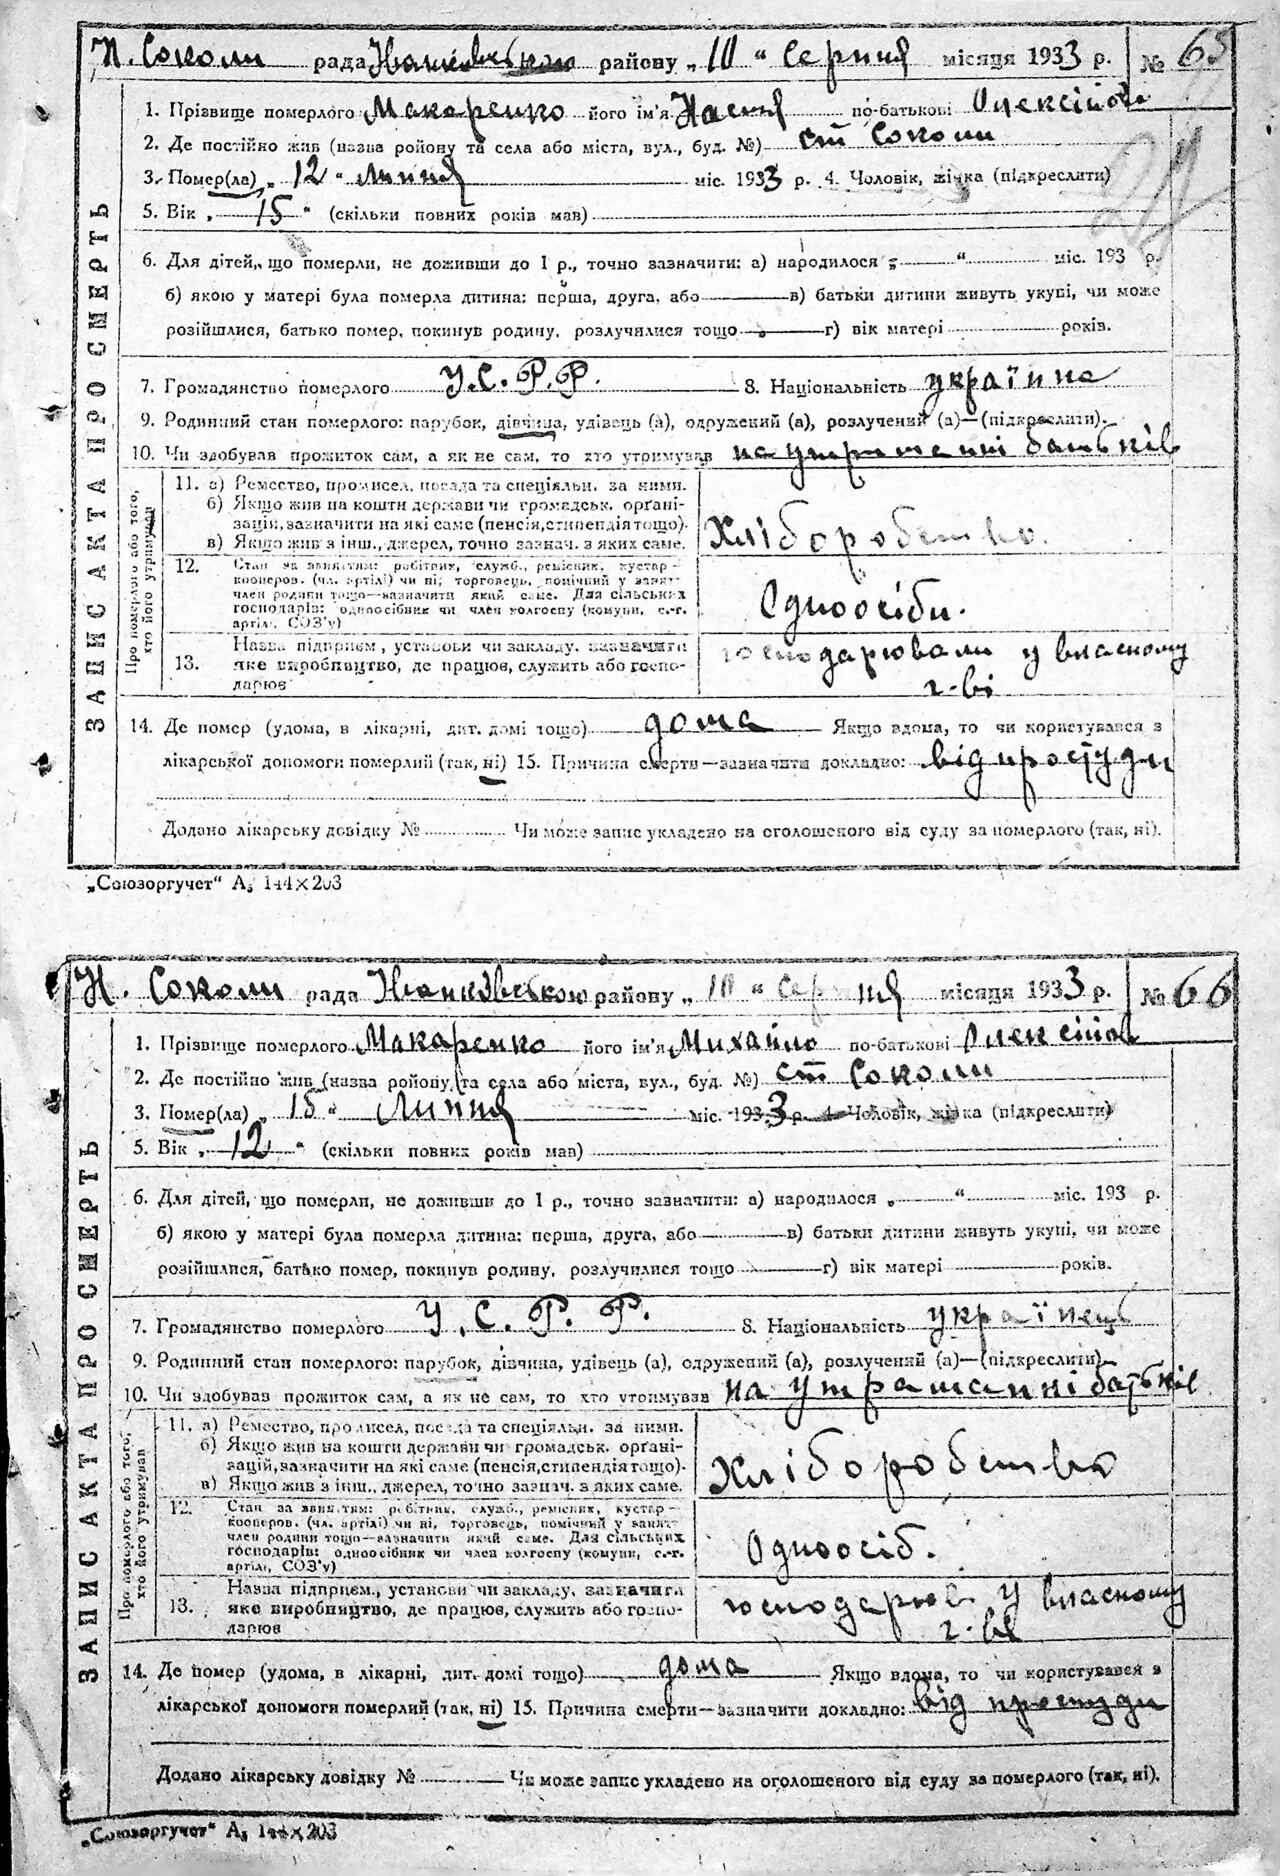 Н. Соколи рада Іванківського району „10“ Серпня місяця 1933 р. № 65
1. Прізвище померлого Макаренко його ім'я Настя по-батькові Олексіївна
2. Де постійно жив (назва ройону та села або міста, вул., буд. №) ст Соколи
3. Помер(ла) „12“ Липня міс. 1933 р. 4. Чоловік, жінка (підкреслити)
5. Вік „15“ (скільки повних років мав)
6. Для дітей, що померли, не доживши до 1 р., точно зазначити: а) народилося „ “ міс. 193 р.
б) якою у матері була померла дитина: перша, друга, або в) батьки дитини живуть укупі, чи може
розійшлися, батько помер, покинув родину, розлучилися тощо г) вік матері років.
7. Громадянство померлого У.С.Р.Р. 8. Національність українка
9. Родинний стан померлого: парубок, дівчина, удівець (а), одружений (а), розлучений (а)—(підкреслити).
10. Чи здобував прожиток сам, а як не сам, то хто утримував на утриманні батьків
ЗАПИС АКТА ПРО СМЕРТЬ
Про померлого або того, хто його утримував
11. а) Ремество, промисел, посада та спеціяльн. за ними.
б) Якщо жив на кошти держави чи громадськ. орґані-
зацій, зазначити на які саме (пенсія, стипендія тощо).
в) Якщо жив з інш., джерел, точно зазнач. з яких саме.
Хліборобство.
12. Стан за заняттям: робітник, служб., ремісник, кустар-
кооперов. (чл. артілі) чи ні; торговець, помічний у занят-
член родини тощо—зазначити який саме. Для сільських
господарів: одноосібник чи член колгоспу (комуни, с.-г.
артілі, СОЗ'у)
Одноосібн.
13. Назва підприєм., установи чи закладу, зазначити
яке виробництво, де працює, служить або госпо-
дарює
господарювали у власному
г-ві
14. Де помер (удома, в лікарні, дит. домі тощо) дома Якщо вдома, то чи користувався з
лікарської допомоги померлий (так, ні) 15. Причина смерти—зазначити докладно: від простуди
Додано лікарську довідку № Чи може запис укладено на оголошеного від суду за померлого (так, ні).
„Союзоргучет“ А₅ 144×203
Н. Соколи рада Іванківською району „10“ Серпня місяця 1933 р. № 66
1. Прізвище померлого Макаренко його ім'я Михайло по-батькові Олексійов
2. Де постійно жив (назва ройону та села або міста, вул., буд. №) ст Соколи
3. Помер(ла) „15“ Липня міс. 1933 р. 4. Чоловік, жінка (підкреслити)
5. Вік „12“ (скільки повних років мав)
6. Для дітей, що померли, не доживши до 1 р., точно зазначити: а) народилося „ “ міс. 193 р.
б) якою у матері була померла дитина: перша, друга, або в) батьки дитини живуть укупі, чи може
розійшлися, батько помер, покинув родину, розлучилися тощо г) вік матері років.
7. Громадянство померлого У.С.Р.Р. 8. Національність українець
9. Родинний стан померлого: парубок, дівчина, удівець (а), одружений (а), розлучений (а)—(підкреслити)
10. Чи здобував прожиток сам, а як не сам, то хто утримував на утриманні батьків
ЗАПИС АКТА ПРО СМЕРТЬ
Про померлого або того, хто його утримував
11. а) Ремество, промисел, посада та спеціяльн. за ними.
б) Якщо жив на кошти держави чи громадськ. орґані-
зацій, зазначити на які саме (пенсія, стипендія тощо).
в) Якщо жив з інш., джерел, точно зазнач. з яких саме.
Хліборобство
12. Стан за заняттям: робітник, служб., ремісник, кустар-
кооперов. (чл. артілі) чи ні, торговець, помічний у занят-
член родини тощо—зазначити який саме. Для сільських
господарів: одноосібник чи член колгоспу (комуни, с.-г.
артілі, СОЗ'у)
Одноосіб.
13. Назва підприєм., установи чи закладу, зазначити
яке виробництво, де працює, служить або госпо-
дарює
господарюв. у власному
г-ві
14. Де помер (удома, в лікарні, дит. домі тощо) дома Якщо вдома, то чи користувався з
лікарської допомоги померлий (так, ні) 15. Причина смерти—зазначити докладно: від простуди
Додано лікарську довідку № Чи може запис укладено на оголошеного від суду за померлого (так, ні).
„Союзоргучет“ А₅ 144×203